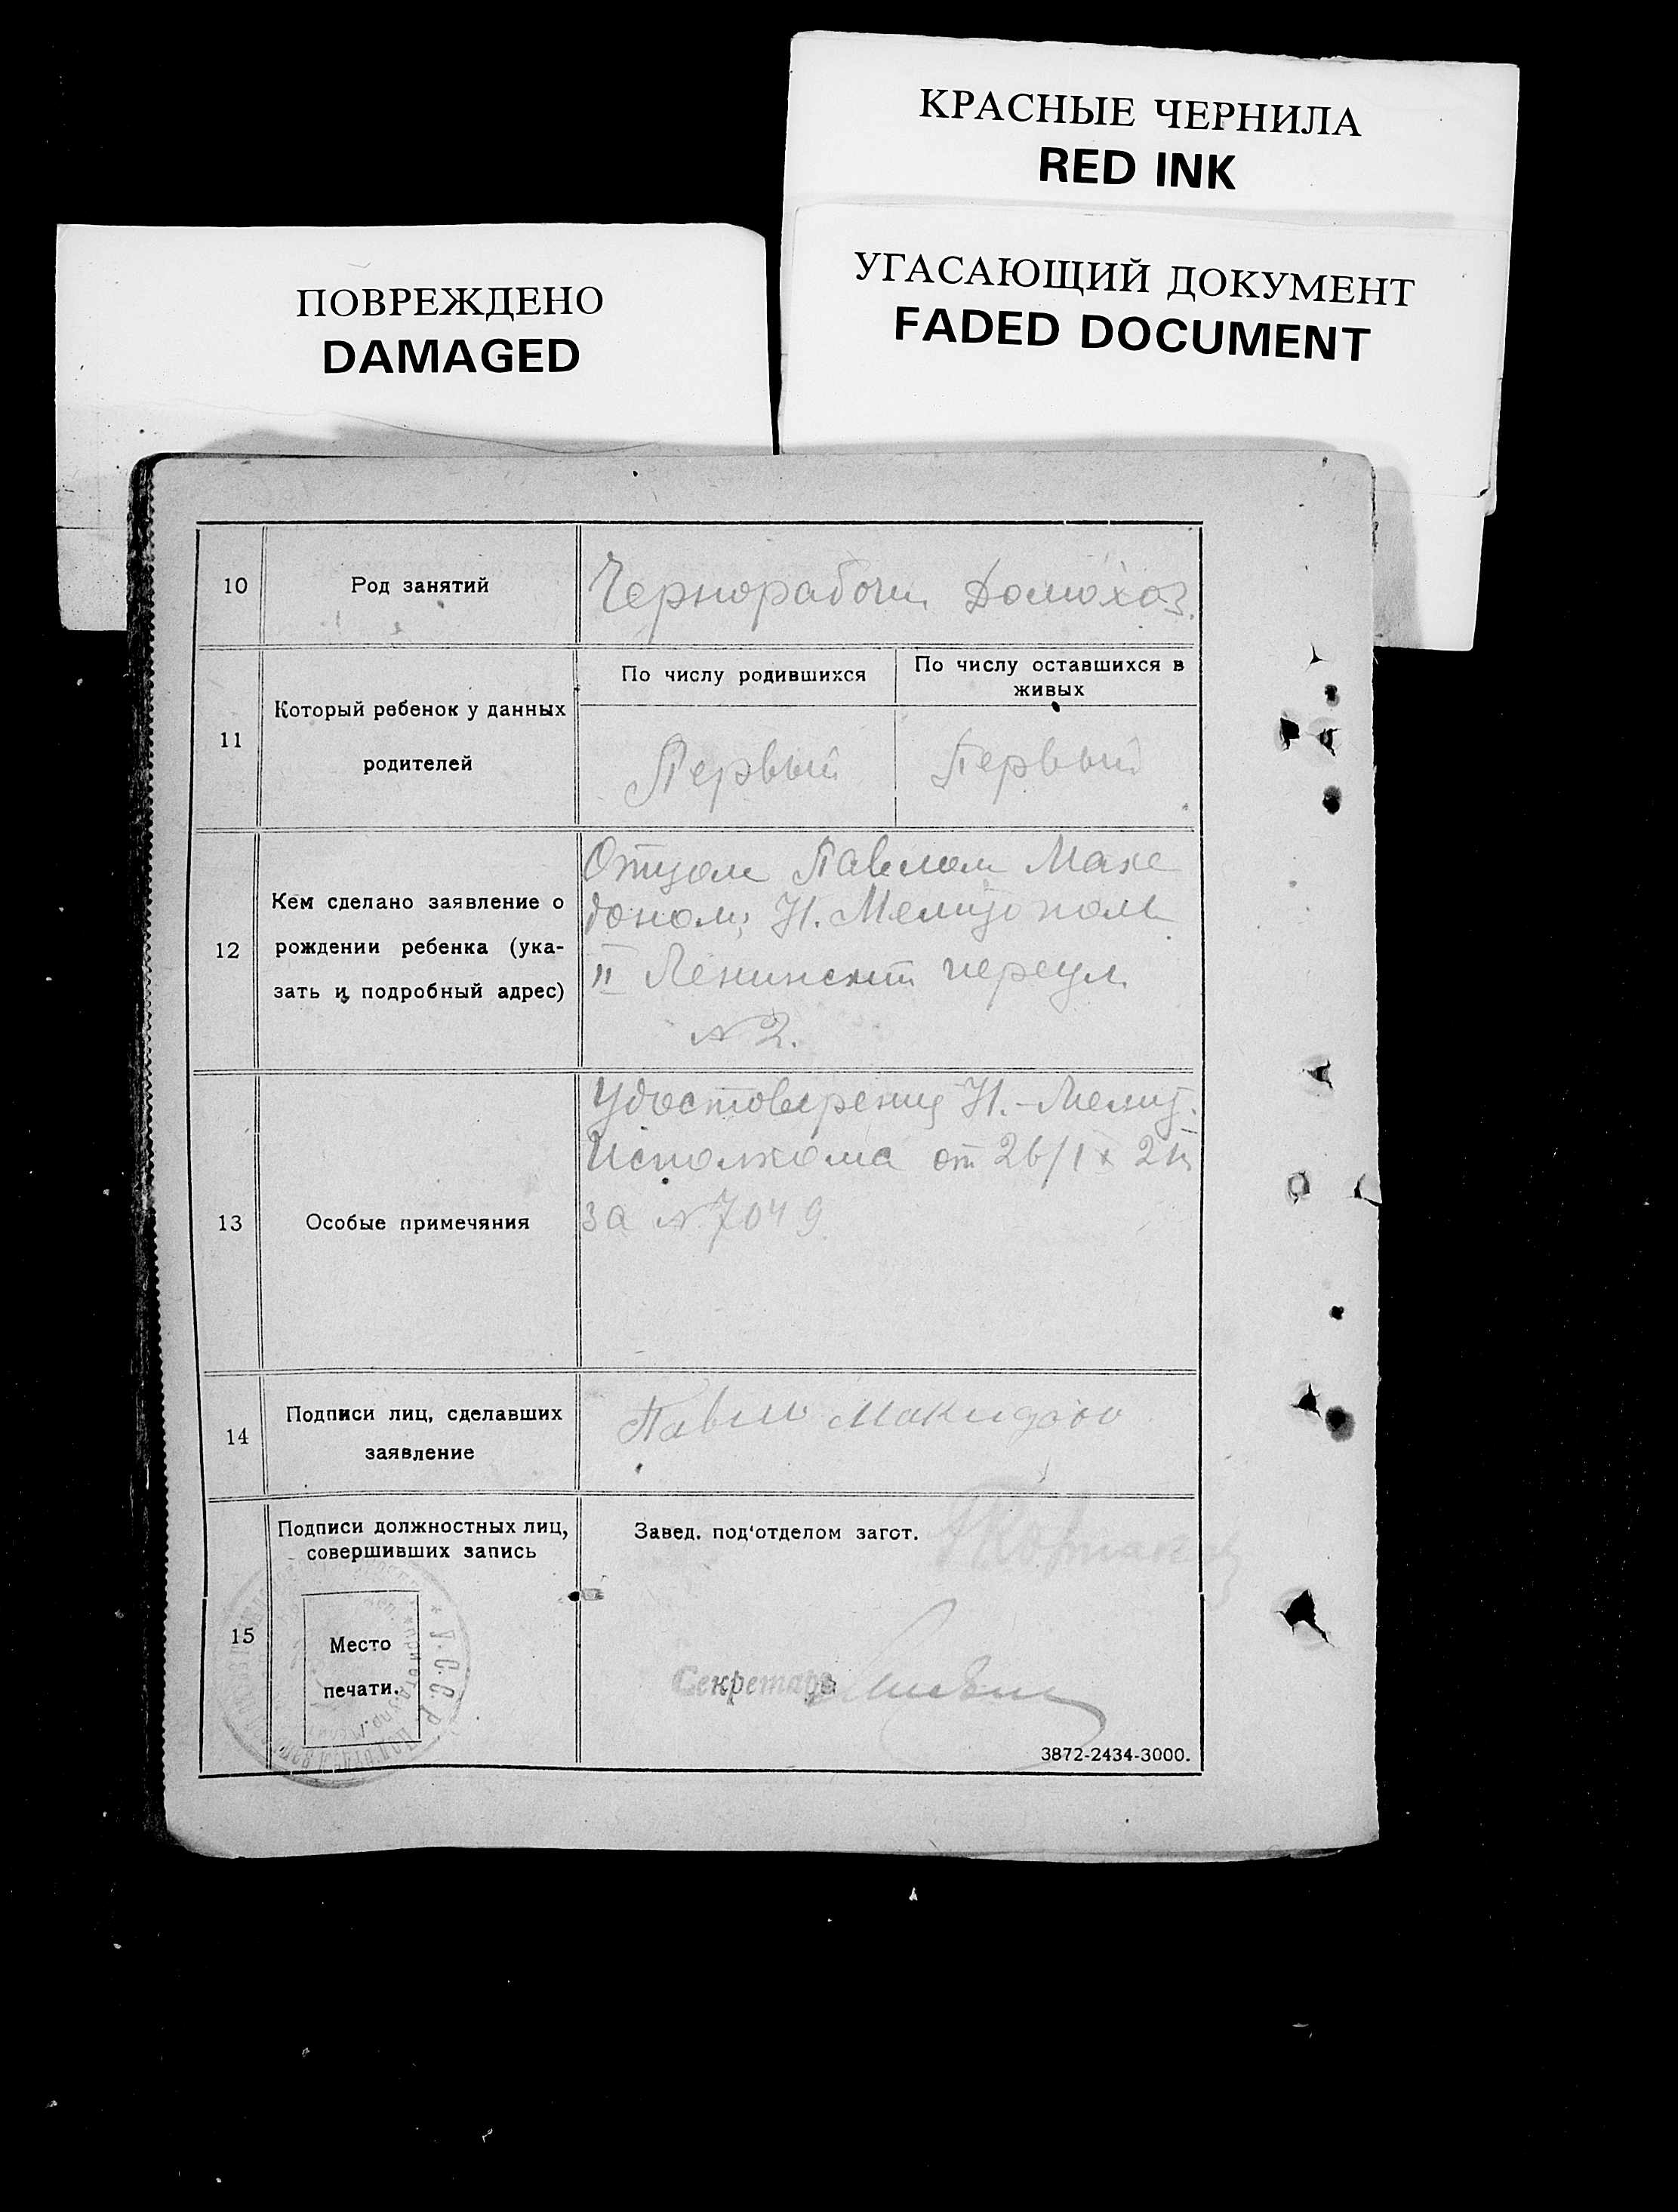 КРАСНЫЕ ЧЕРНИЛА
RED INK
УГАСАЮЩИЙ ДОКУМЕНТ
FADED DOCUMENT
ПОВРЕЖДЕНО
DAMAGED
10
Род занятий
Чернорабочи Домохоз.
11
Который ребенок у данных
родителей
По числу родившихся
По числу оставшихся в
живых
Первый
Первый
12
Кем сделано заявление о
рождении ребенка (ука-
зать и подробный адрес)
Отцом Павлом Маке
доном, Н. Мелитополь
II Ленинский переул.
№ 2.
13
Особые примечяния
Удостоверения Н.-Мелит.
Исполкома от 26/IX
за № 7049
14
Подписи лиц, сделавших
заявление
Павло Македон
15
Подписи должностных лиц,
совершивших запись
Место
печати.
У.С.С.Р.
Завед. под'отделом загст.
Секретарь
3872-2434-3000.